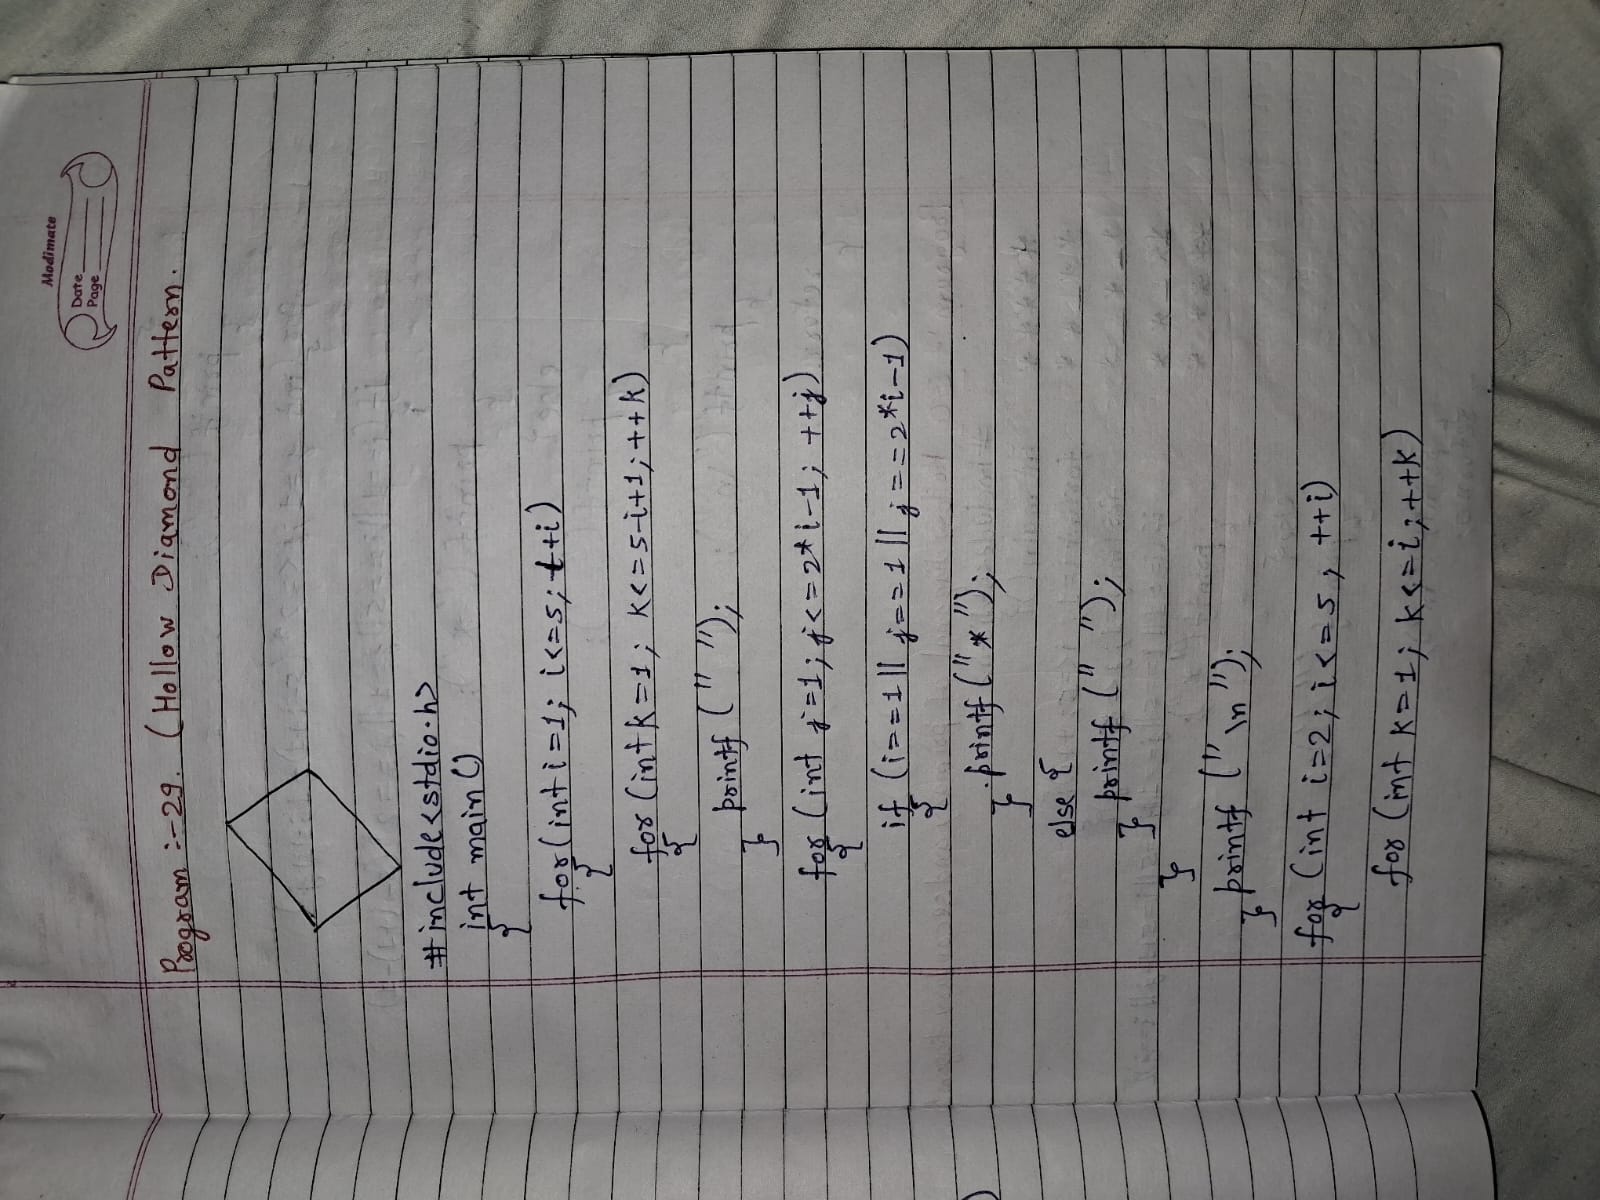 Modimate
Date
Page
Program :- 29. (Hollow Diamond Pattern.
#include<stdio.h>
int main ()
{
for (int i=1; i<=5; ++i)
{
for (int k=1; k<=5-i+1; ++k)
{
printf (" ");
}
for (int j=1; j<=2*i-1; ++j)
{
if (i==1 || j==1 || j==2*i-1)
{
printf ("*");
}
else {
printf (" ");
}
}
printf ("\n");
}
for (int i=2; i<=5, ++i)
{
for (int k=1; k<=i; ++k)